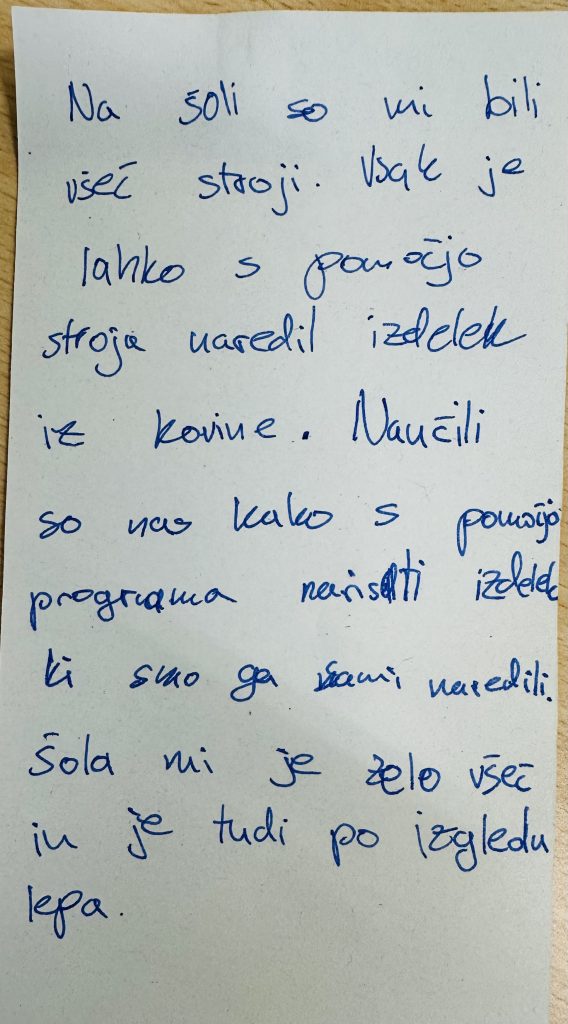 Na šoli so mi bili
všeč stroji. Vsak je
lahko s pomočjo
stroja naredil izdelek
iz kovine. Naučili
so nas kako s pomočjo
programa narisati izdelek
ki smo ga sami naredili.
Šola mi je zelo všeč
in je tudi po izgledu
lepa.